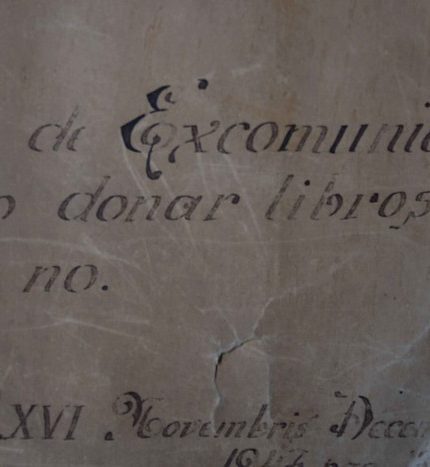 de Excomuni
donar libros
no.
LXVI Novembris Decem